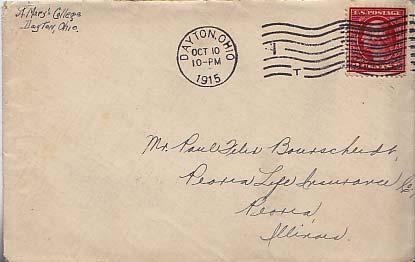 St. Mary's College
Dayton, Ohio.
DAYTON, OHIO
OCT 10
10-PM
1915
T
U.S. POSTAGE
Mr. Paul Felix Bourscheidt,
Peoria Life Insurance Co,
Peoria,
Illinois.